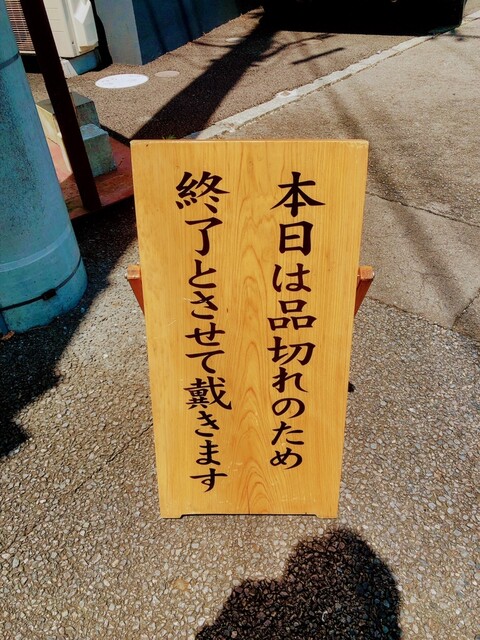 本日は品切れのため
終了とさせて戴きます